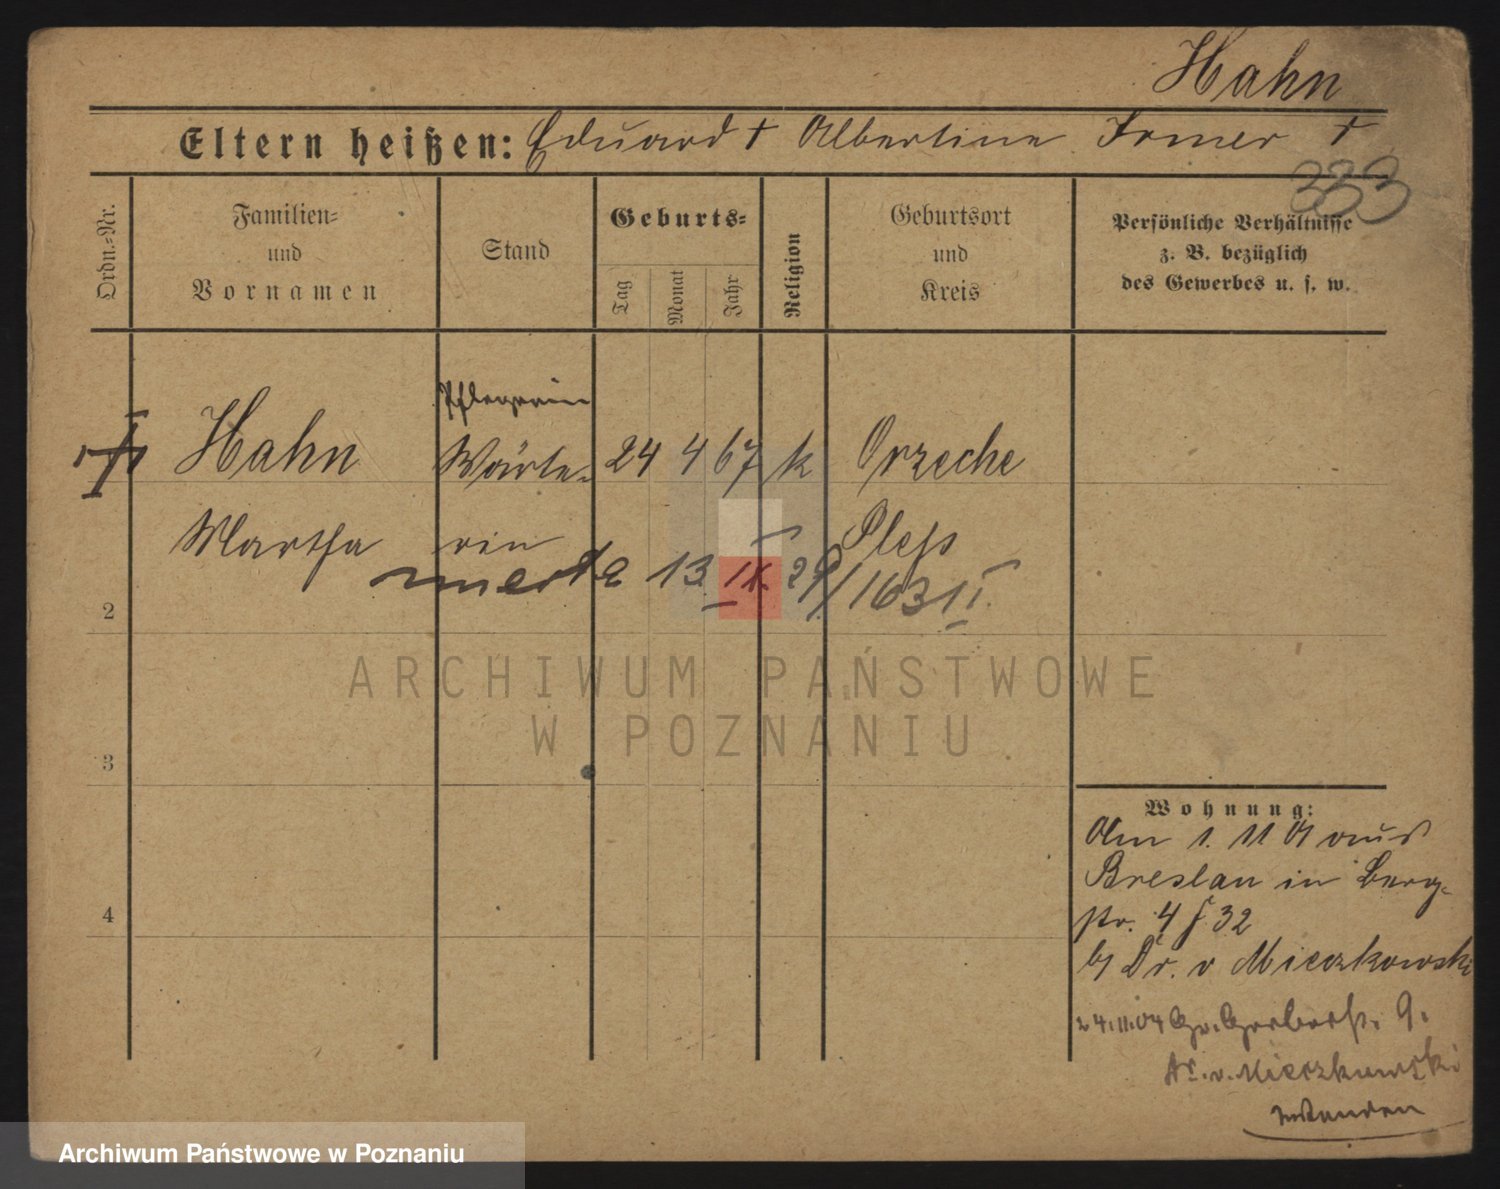 Hahn
Eltern heißen: Eduard † Albertine Irmer †
333
Ordn.-Nr.
Familien-
und
Vornamen
Stand
Geburts-
Tag
Monat
Jahr
Religion
Geburtsort
und
Kreis
Persönliche Verhältnisse
z. B. bezüglich
des Gewerbes u. s. w.
Pflegerin
Hahn Wärte- 24 4 67 k Orzeche
Martha rin Pleß
13 IX 29/1631 I
2
3
4
ARCHIWUM PAŃSTWOWE
W POZNANIU
Wohnung:
Am 1. 11 01 aus
Breslau in Berg-
str. 4 32
b/ Dr. v Mieczkowski
24.11.04 Gr. Gerberstr. 9.
Dr. v. Mieczkowski
Archiwum Państwowe w Poznaniu